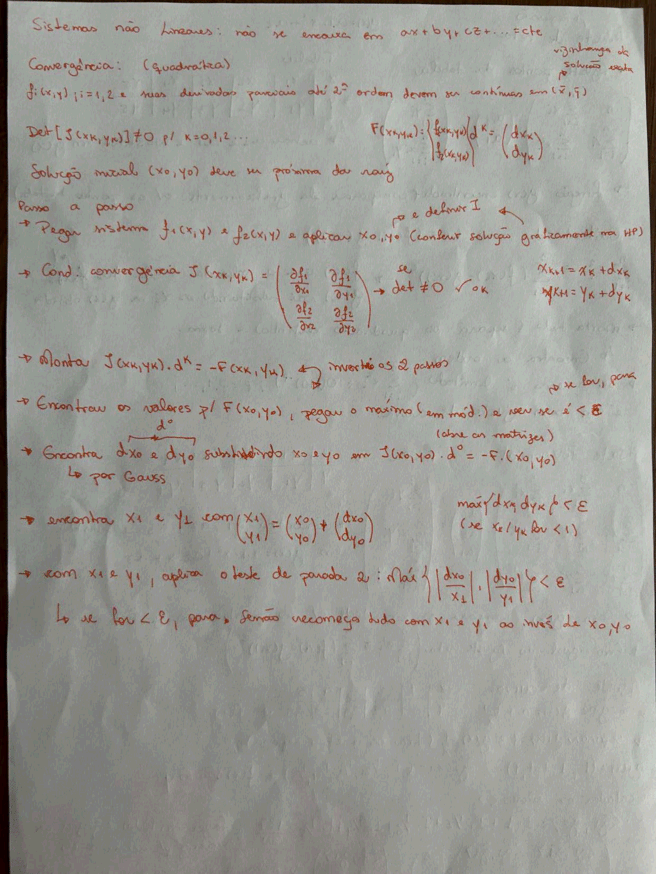 Sistemas não lineares: não se encaixa em ax + by + cz + ... = cte
Convergência: (quadrática)
vizinhança da
solução exata
fi(x,y); i=1,2 e suas derivadas parciais até 2ª ordem devem ser contínuas em (x̄, ȳ)
Det [J(xk,yk)] ≠ 0 p/ k=0,1,2...
F(xk,yk) = {f1(xk,yk) f2(xk,yk)} d^k = (dxk dyk)
Solução inicial (x0,y0) deve ser próxima da raiz
Passo a passo
→ Pegar sistema f1(x,y) e f2(x,y) e aplicar x0,y0 (conferir solução graficamente na HP)
e definir I
→ Cond. convergência J(xk,yk) = (∂f1/∂x1 ∂f1/∂y1 ∂f2/∂x2 ∂f2/∂y2) → se det ≠ 0 ✓ ok
xk+1 = xk + dxk
yk+1 = yk + dyk
→ Monta J(xk,yk) . d^k = -F(xk,yk) inverti os 2 passos
→ Encontrar os valores p/ F(x0,y0), pegar o máximo (em mód.) e ver se é < ε
se for, para
d⁰ (abre as matrizes)
→ Encontra dx0 e dy0 substituindo x0 e y0 em J(x0,y0) . d⁰ = -F.(x0,y0)
↳ por Gauss
→ encontra x1 e y1 com (x1 y1) = (x0 y0) + (dx0 dy0)
máx{dxk, dyk} < ε
(se xk/yk for < 1)
→ com x1 e y1, aplica o teste de parada 2: Máx {|dx0/x1|, |dy0/y1|} < ε
↳ se for < ε, para, senão recomeça tudo com x1 e y1 ao invés de x0,y0